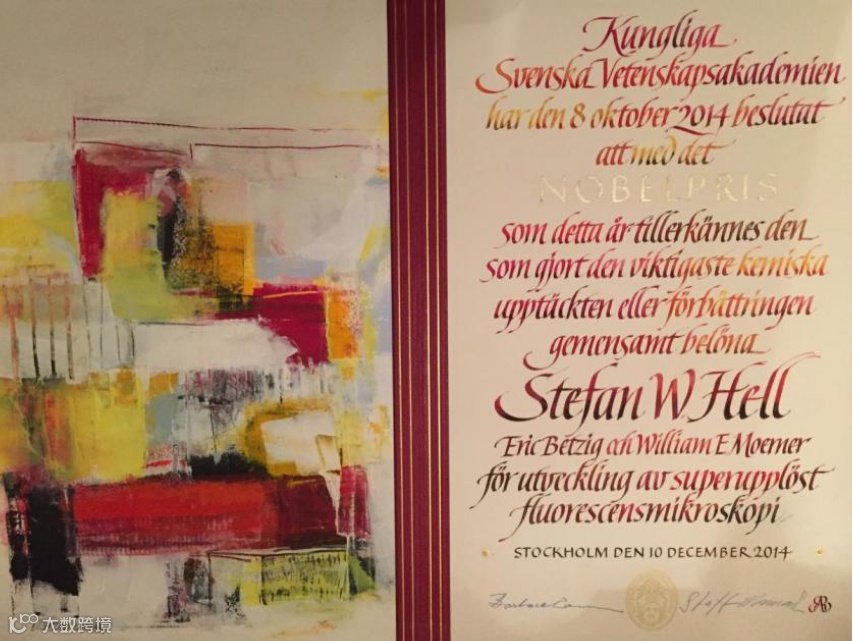 Kungliga
Svenska Vetenskapsakademien
har den 8 oktober 2014 beslutat
att med det
NOBELPRIS
som detta år tillerkännes den
som gjort den viktigaste kemiska
upptäckten eller förbättringen
gemensamt belöna
Stefan W Hell
Eric Betzig och William E Moerner
för utveckling av superupplöst
fluorescensmikroskopi
STOCKHOLM DEN 10 DECEMBER 2014
大数跨境